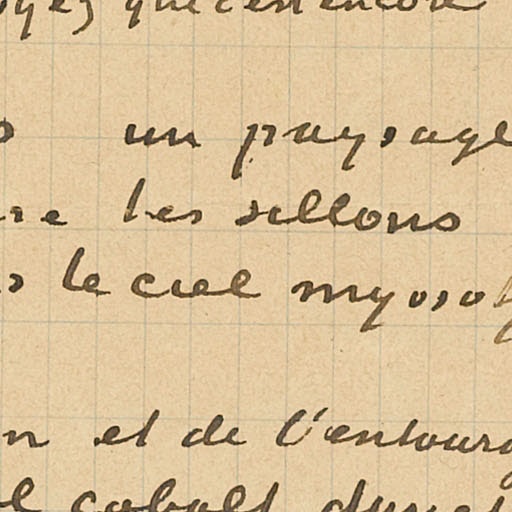 que c'est encore
un paysage
les sellons
le ciel myoso
et de l'entour
cobalt